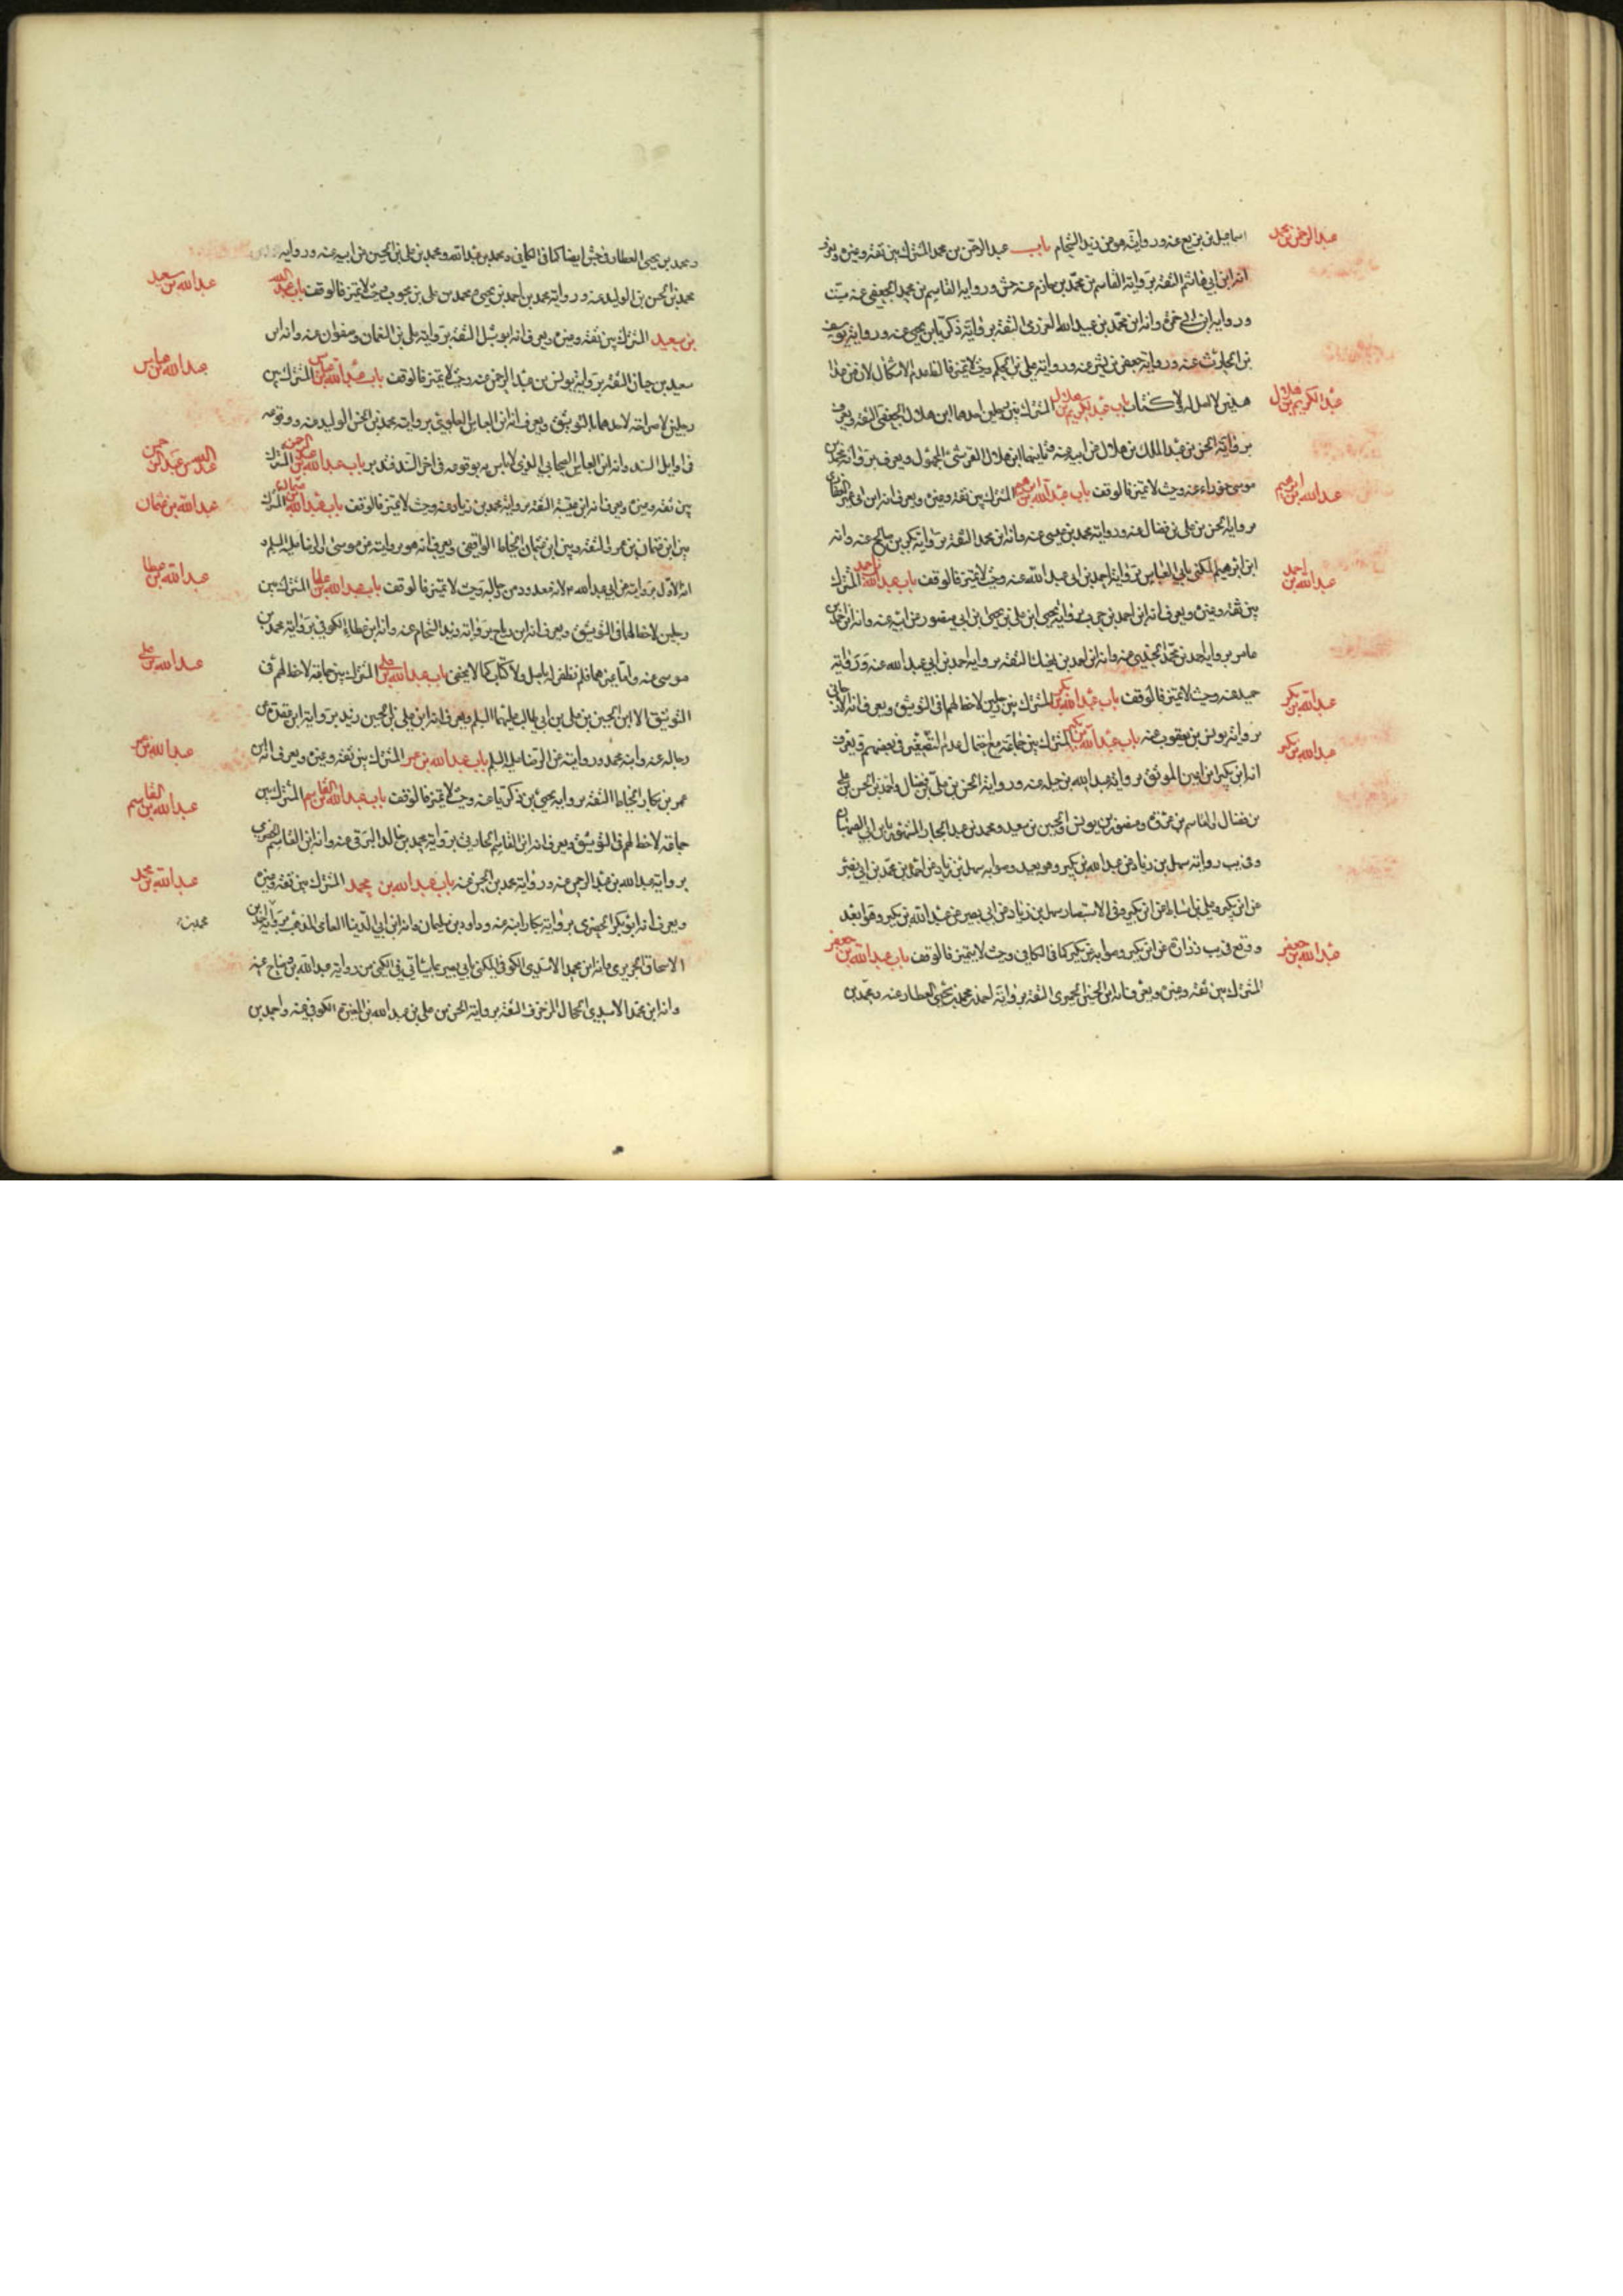 عبد الرحمن بن محمد
اسماعيل بن بزيع عنه وروايته هو من زيد الشحام باب عبد الرحمن بن محمد المشترك بين ثقة وغيره ويعرف
انه ابن ابي هاشم الثقة برواية القاسم بن محمد بن حازم عنه جش ورواية القاسم بن محمد الجعفي عنه ست
ورواية ابن ابي حمزة وانه ابن محمد بن عبيد الله العرزمي الثقة برواية زكريا بن يحيى عنه ورواية يوسف
بن الحارث عنه ورواية جعفر بن بشير عنه ورواية علي بن الحكم وحيث لا تميز فالظاهر عدم الاشكال لان من عدا
عبد الكريم بن هلال
هذين لا اصل له ولا كتاب باب عبد الكريم بن هلال المشترك بين رجلين احدهما ابن هلال الجعفي الثقة ويعرف
برواية الحسن بن عبد الملك بن هلال عن ابيه عنه وثانيهما ابن هلال القرشي المجهول ويعرف برواية محمد بن
عبد الله بن ابرهيم
موسى خوراء عنه وحيث لا تميز فالوقف باب عبد الله بن ابرهيم المشترك بين ثقة وغيره ويعرف انه ابن ابي عمرو الغفاري
برواية الحسن بن علي بن فضال عنه ورواية محمد بن عيسى عنه وانه ابن محمد الثقة برواية بكر بن صالح عنه وانه
عبد الله بن احمد
ابن ابرهيم المكنى بابي العباس برواية احمد بن ابي عبد الله عنه وحيث لا تميز فالوقف باب عبد الله بن احمد المشترك
بين ثقة وغيره ويعرف انه ابن احمد بن حرب برواية يحيى ابن علي بن يحيى ابن ابي منصور عن ابيه عنه وانه ابن احمد بن
عامر برواية احمد بن محمد الجندي عنه وانه ابن احمد بن نهيك الثقة برواية احمد بن ابي عبد الله عنه ورواية
عبد الله بن بكر
حميد عنه وحيث لا تميز فالوقف باب عبد الله بن بكر المشترك بين رجلين لا حظ لهما في التوثيق ويعرف انه الارجاني
عبد الله بن بكير
برواية يونس بن يعقوب عنه باب عبد الله بن بكير المشترك بين جماعة مع احتمال عدم التضعيف في بعضهم ويعرف
انه ابن بكير ابن اعين الموثق برواية عبد الله بن جبلة عنه ورواية الحسن بن علي بن فضال واحمد بن الحسن بن علي
بن فضال والقاسم بن عروة ومنصور بن يونس والحسين بن سعيد ومحمد بن عبد الجبار المشهور بابن ابي الصهبان
وفي يب رواية سهل بن زياد عن عبد الله بن بكير وهو بعيد وصوابه سهل بن زياد عن احمد بن محمد بن ابي نصر
عن ابن بكير وعلي بن اسباط عن ابن بكير وفي الاستبصار سهل بن زياد عن ابي بصير عن عبد الله بن بكير وهو ابعد
عبد الله بن جعفر
ووقع في يب زرارة عن ابن بكير وصوابه بن بكير كما في الكافي وحيث لا يتميز فالوقف باب عبد الله بن جعفر
المشترك بين ثقة وغيره ويعرف انه ابن الحسن الحميري الثقة برواية احمد بن محمد بن يحيى العطار عنه ومحمد بن
ومحمد بن يحيى العطار في جش ايضا كما في الكافي ومحمد بن عبد الله ومحمد بن علي بن الحسين عن ابيه عنه ورواية
عبد الله بن سعيد
محمد بن الحسن بن الوليد عنه ورواية محمد بن احمد بن يحيى ومحمد بن علي بن محبوب وحيث لا تميز فالوقف باب عبد الله
بن سعيد المشترك بين ثقة وغيره ويعرف انه ابو شبل الثقة برواية علي بن النعمان وصفوان عنه وانه ابن
عبد الله بن عباس
سعيد بن حيان الثقة برواية يونس بن عبد الرحمن عنه وحيث لا تميز فالوقف باب عبد الله بن عباس المشترك بين
رجلين لا صراحة لاحدهما بالتوثيق ويعرف انه ابن العباس العلوي برواية محمد بن الحسن الوليد عنه ووقوعه
عبد الله بن عبد الرحمن
في اوايل السند وانه ابن العباس الصحابي الذي لا باس به بوقوعه في اخر السند فتدبر باب عبد الله بن عبد الرحمن المشترك
عبد الله بن عثمان
بين ثقة وغيره ويعرف انه ابن عتيبة الثقة برواية محمد بن زياد عنه وحيث لا تميز فالوقف باب عبد الله بن عثمان المشترك
بين ابن عثمان بن عمرو الثقة وبين ابن عثمان الحناط الواقفي ويعرف انه هو بروايته عن موسى او الرضا عليه السلم و
عبد الله بن عطا
انه الاول بروايته عن ابي عبد الله ع لانه معدود من رجاله وحيث لا تميز فالوقف باب عبد الله بن عطا المشترك بين
رجلين لا حظ لهما في التوثيق ويعرف انه ابن رباح بروايته وزيد الشحام عنه وانه ابن عطاء الكوفي برواية محمد بن
عبد الله بن علي
موسى عنه واما غيرهما فلم نظفر له باصل ولا كتاب كما لا يخفى باب عبد الله بن علي المشترك بين جماعة لا حظ لهم في
التوثيق الا ابن الحسين بن علي بن ابي طالب عليهما السلم ويعرف انه ابن علي بن الحسين زيد برواية ابن عقدة عن
عبد الله بن عمر
رجاله عنه وابنه محمد وروايته عن الرضا عليه السلم باب عبد الله بن عمر المشترك بين ثقة وغيره ويعرف انه ابن
عبد الله بن القاسم
عمر بن بكار الحناط الثقة برواية يحيى بن زكريا عنه وحيث لا تميز فالوقف باب عبد الله بن القاسم المشترك بين
جماعة لا حظ لهم في التوثيق ويعرف انه ابن القاسم الحارثي برواية محمد بن خالد البرقي عنه وانه ابن القاسم الحضرمي
عبد الله بن محمد
برواية عبد الله بن عبد الرحمن عنه ورواية محمد بن الحسن عنه باب عبد الله بن محمد المشترك بين ثقة وغيره
ويعرف انه ابو بكر الحضرمي برواية بكار ابنه عنه وداود بن سليمان وانه ابن ابي الدنيا العامي المذهب برواية احمد بن
محمد بن
الاسحاق الحريري وانه ابن محمد الاسدي الكوفي المكنى بابي بصير بما ياتي في الكنى من رواية عبد الله بن وضاح عنه
وانه ابن محمد الاسدي الحجال المزخرف الثقة برواية الحسن بن علي بن عبد الله بن المغيرة الكوفي عنه واحمد بن